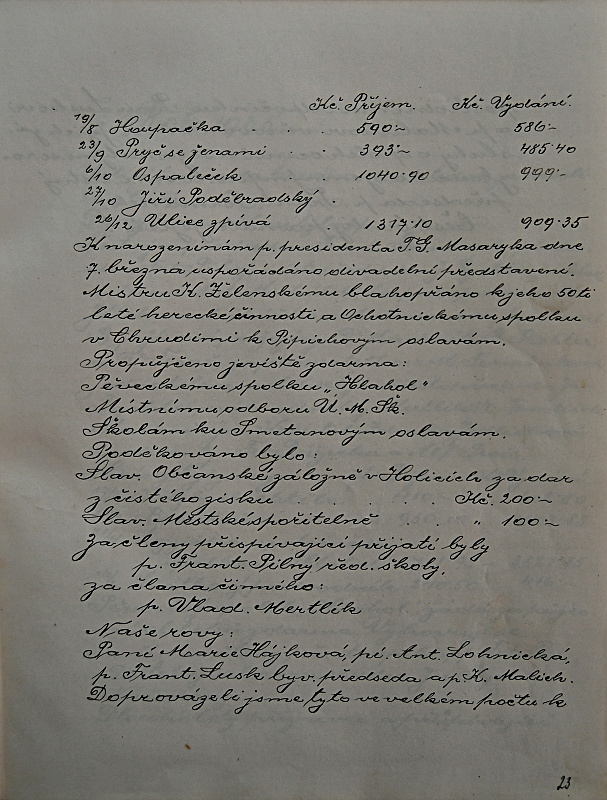 Kč. Příjem. Kč. Vydání.
19/8 Houpačka . . . 590·– 586·–
23/9 Pryč se ženami . . 393·– 485·40
6/10 Ospaleček . . 1040·90 999·–
27/10 Jiří Poděbradský .
26/12 Ulice zpívá . 1317·10 909·35
K narozeninám p. presidenta T. G. Masaryka dne
7. března uspořádáno divadelní představení.
Mistru K. Želenskému blahopřáno k jeho 50ti
leté herecké činnosti, a Ochotnickému spolku
v Chrudimi k Pipichovým oslavám.
Propůjčeno jeviště zdarma:
Pěveckému spolku „Hlahol“
Místnímu odboru Ú. M. Šk.
Školám ku Smetanovým oslavám.
Poděkováno bylo:
Slav. Občanské záložně v Holicích za dar
z čistého zisku . . . . . . Kč. 200·–
Slav. Městské spořitelně . . „ 100·–
Za členy přispívající přijati byly
p. Frant. Pilný řed. školy,
za člana činného:
p. Vlad. Mertlík
Naše rovy:
Paní Marie Hájková, pí. Ant. Lohnická,
p. Frant. Lusk byv. předseda a p. K. Malich.
Doprovázeli jsme tyto ve velkém počtu k
23